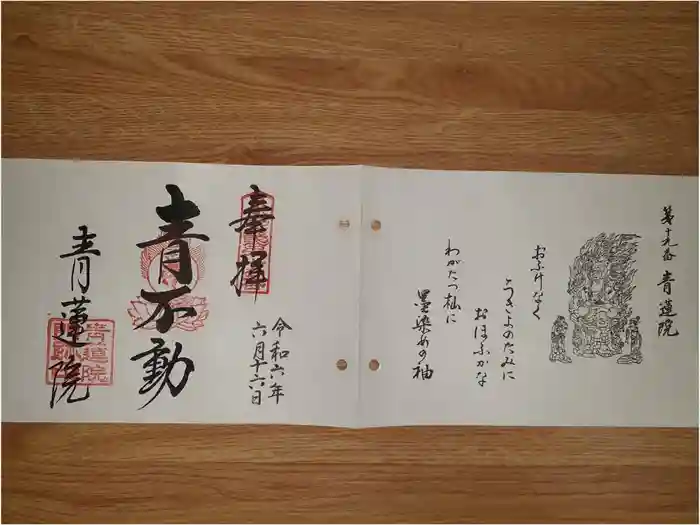 第十九番 青蓮院
おふけなく
うきよのたみに
おほふかな
わがたつ杣に
墨染めの袖
奉拝
令和六年
六月十六日
青不動
青蓮院
青蓮院